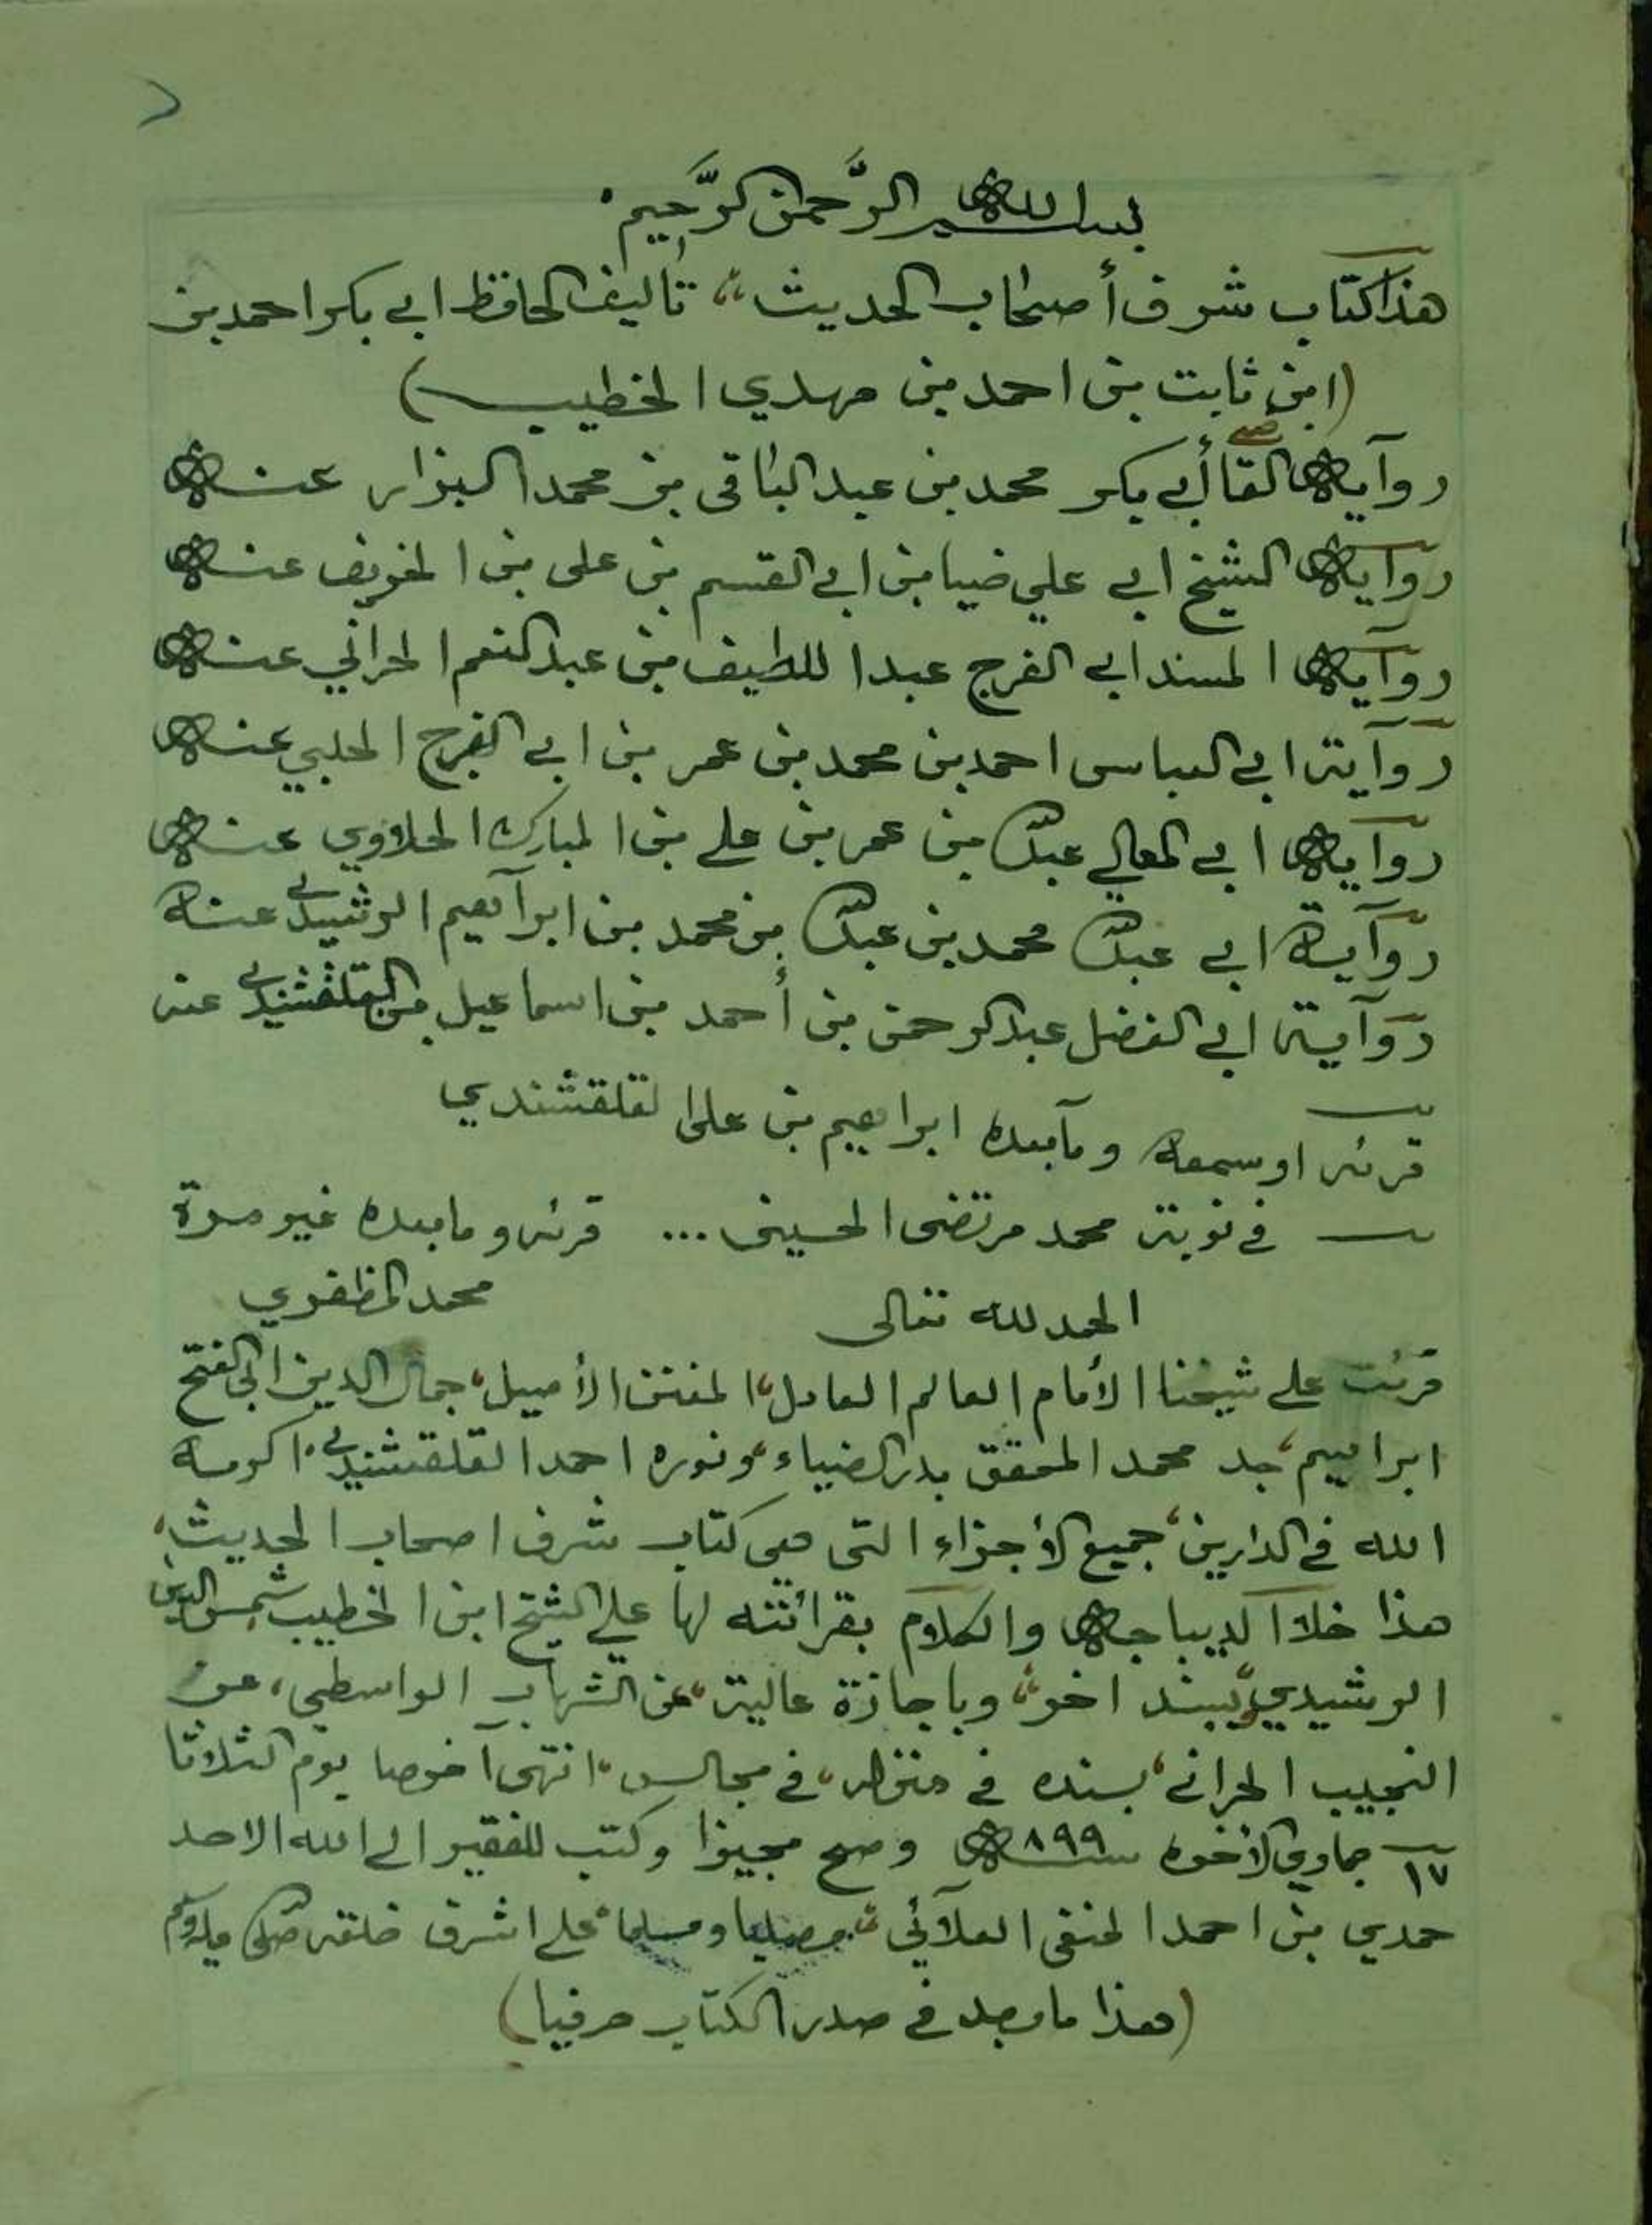 بسم الله الرحمن الرحيم
هذا كتاب شرف أصحاب الحديث تأليف الحافظ ابي بكر احمد بن
(ابن ثابت بن احمد بن مهدي الخطيب)
رواية القا أبي بكر محمد بن عبد الباقى بن محمد البزار عنه
رواية الشيخ ابي علي ضيا بن ابي القسم بن على بن الخريف عنه
رواية المسند ابي الفرج عبد اللطيف بن عبد المنعم الحراني عنه
رواية ابي العباس احمد بن محمد بن عمر بن ابي الفرج الحلبي عنه
رواية ابي المعالي عبد الله بن عمر بن علي بن المبارك الحلاوي عنه
رواية ابي عبد الله محمد بن عبد الله بن محمد بن ابراهيم الرشيدي عنه
رواية ابي الفضل عبد الرحمن بن أحمد بن اسماعيل القلقشندي عنه
قرئه او سمعه وما بعده ابراهيم بن على القلقشندي
في نوبة محمد مرتضى الحسينى ... قرئه وما بعده غير مرة
محمد المظفري
الحمد لله تعالى
قرئت علي شيخنا الأمام العالم العامل، المفنن الأصيل، جمال الدين ابي الفتح
ابراهيم، جد محمد المحقق بدر الضياء، ونوره احمد القلقشندي، اكرمه
الله في الدارين، جميع الأجزاء التى هى كتاب شرف اصحاب الحديث،
هذا خلا الديباجة والكلام بقرائته لها علي الشيخ ابن الخطيب شمس الدين
الرشيدي، بسند اخر، وباجازة عالية، عن الشهاب الواسطي، عن
النجيب الحراني، بسنده في منزله، في مجالس، انتهى آخرها يوم الثلاثا
١٧ جمادي الأخره سنة ٨٩٩ وصح مجيزا وكتب الفقير الي الله الاحد
حمدي بن احمد الحنفي العلآئي، مصليا ومسلما، علي اشرف خلقه صلى الله عليه وسلم
(هذا ما وجد في صدر الكتاب حرفيا)